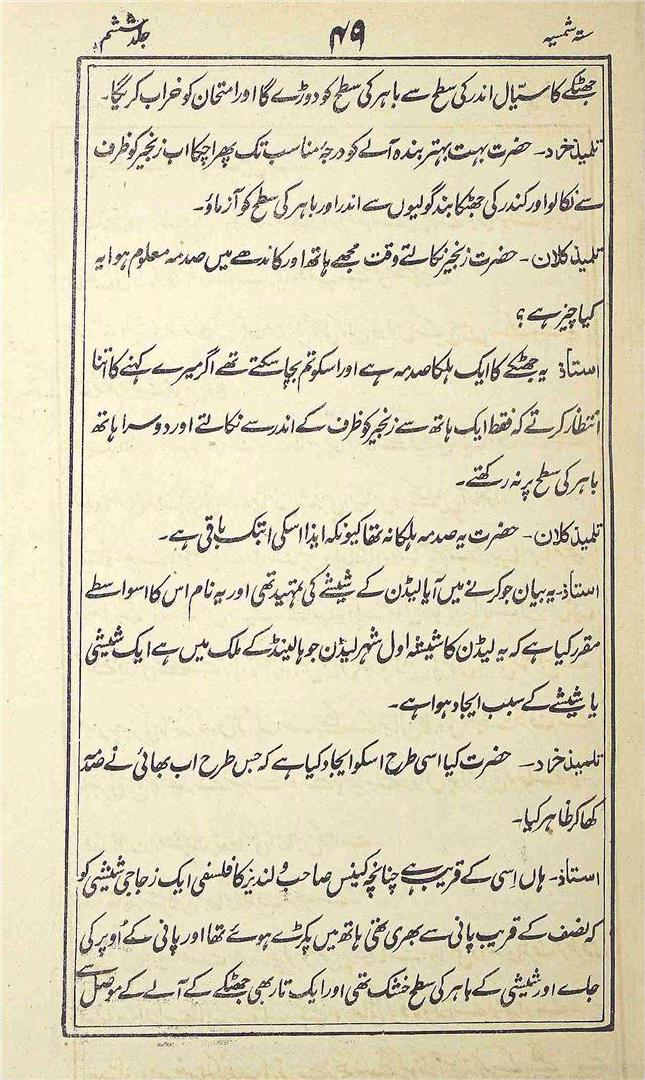 ستہ شمسیہ ۴۹ جلد ششم
جھٹکے کا سیّال اندر کی سطح سے باہر کی سطح کو دوڑے گا اور امتحان کو خراب کریگا۔
تلمیذ خرد۔ حضرت بہت بہتر بندہ آلے کو درجۂ مناسب تک پھرا چکا اب زنجیر کو ظرف
سے نکالو اور کندر کی جھٹکا بند گولیوں سے اندر اور باہر کی سطح کو آزماؤ۔
تلمیذ کلان۔ حضرت زنجیر نکالتے وقت مجھے ہاتھ اور کاندھے میں صدمہ معلوم ہوا یہ
کیا چیز ہے؟
استاذ یہ جھٹکے کا ایک ہلکا صدمہ ہے اور اسکو تم بچا سکتے تھے اگر میرے کہنے کا اتنا
انتظار کرتے کہ فقط ایک ہاتھ سے زنجیر کو ظرف کے اندر سے نکالتے اور دوسرا ہاتھ
باہر کی سطح پر نہ رکھتے۔
تلمیذ کلان۔ حضرت یہ صدمہ ہلکا نہ تھا کیونکہ ایذا اسکی ابتک باقی ہے۔
استاذ۔ یہ بیان جو کرنے میں آیا لیڈن کے شیشے کی تمہید تھی اور یہ نام اس کا اسواسطے
مقرر کیا ہے کہ یہ لیڈن کا شیشہ اول شہر لیڈن جو ہالینڈ کے ملک میں ہے ایک شیشی
یا شیشے کے سبب ایجاد ہوا ہے۔
تلمیذ خرد۔ حضرت کیا اسی طرح اسکو ایجاد کیا ہے کہ جس طرح اب بھائی نے صدمہ
کھا کر ظاہر کیا۔
استاذ۔ ہاں اِسی کے قریب ہے چنانچہ کینس صاحب ولندیز کا فلسفی ایک زجاجی شیشی کو
کہ نصف کے قریب پانی سے بھری تھی ہاتھ میں پکڑے ہوئے تھا اور پانی کے اُوپر کی
جاے اور شیشی کے باہر کی سطح خشک تھی اور ایک تار بھی جھٹکے کے آلے کے موصل سے